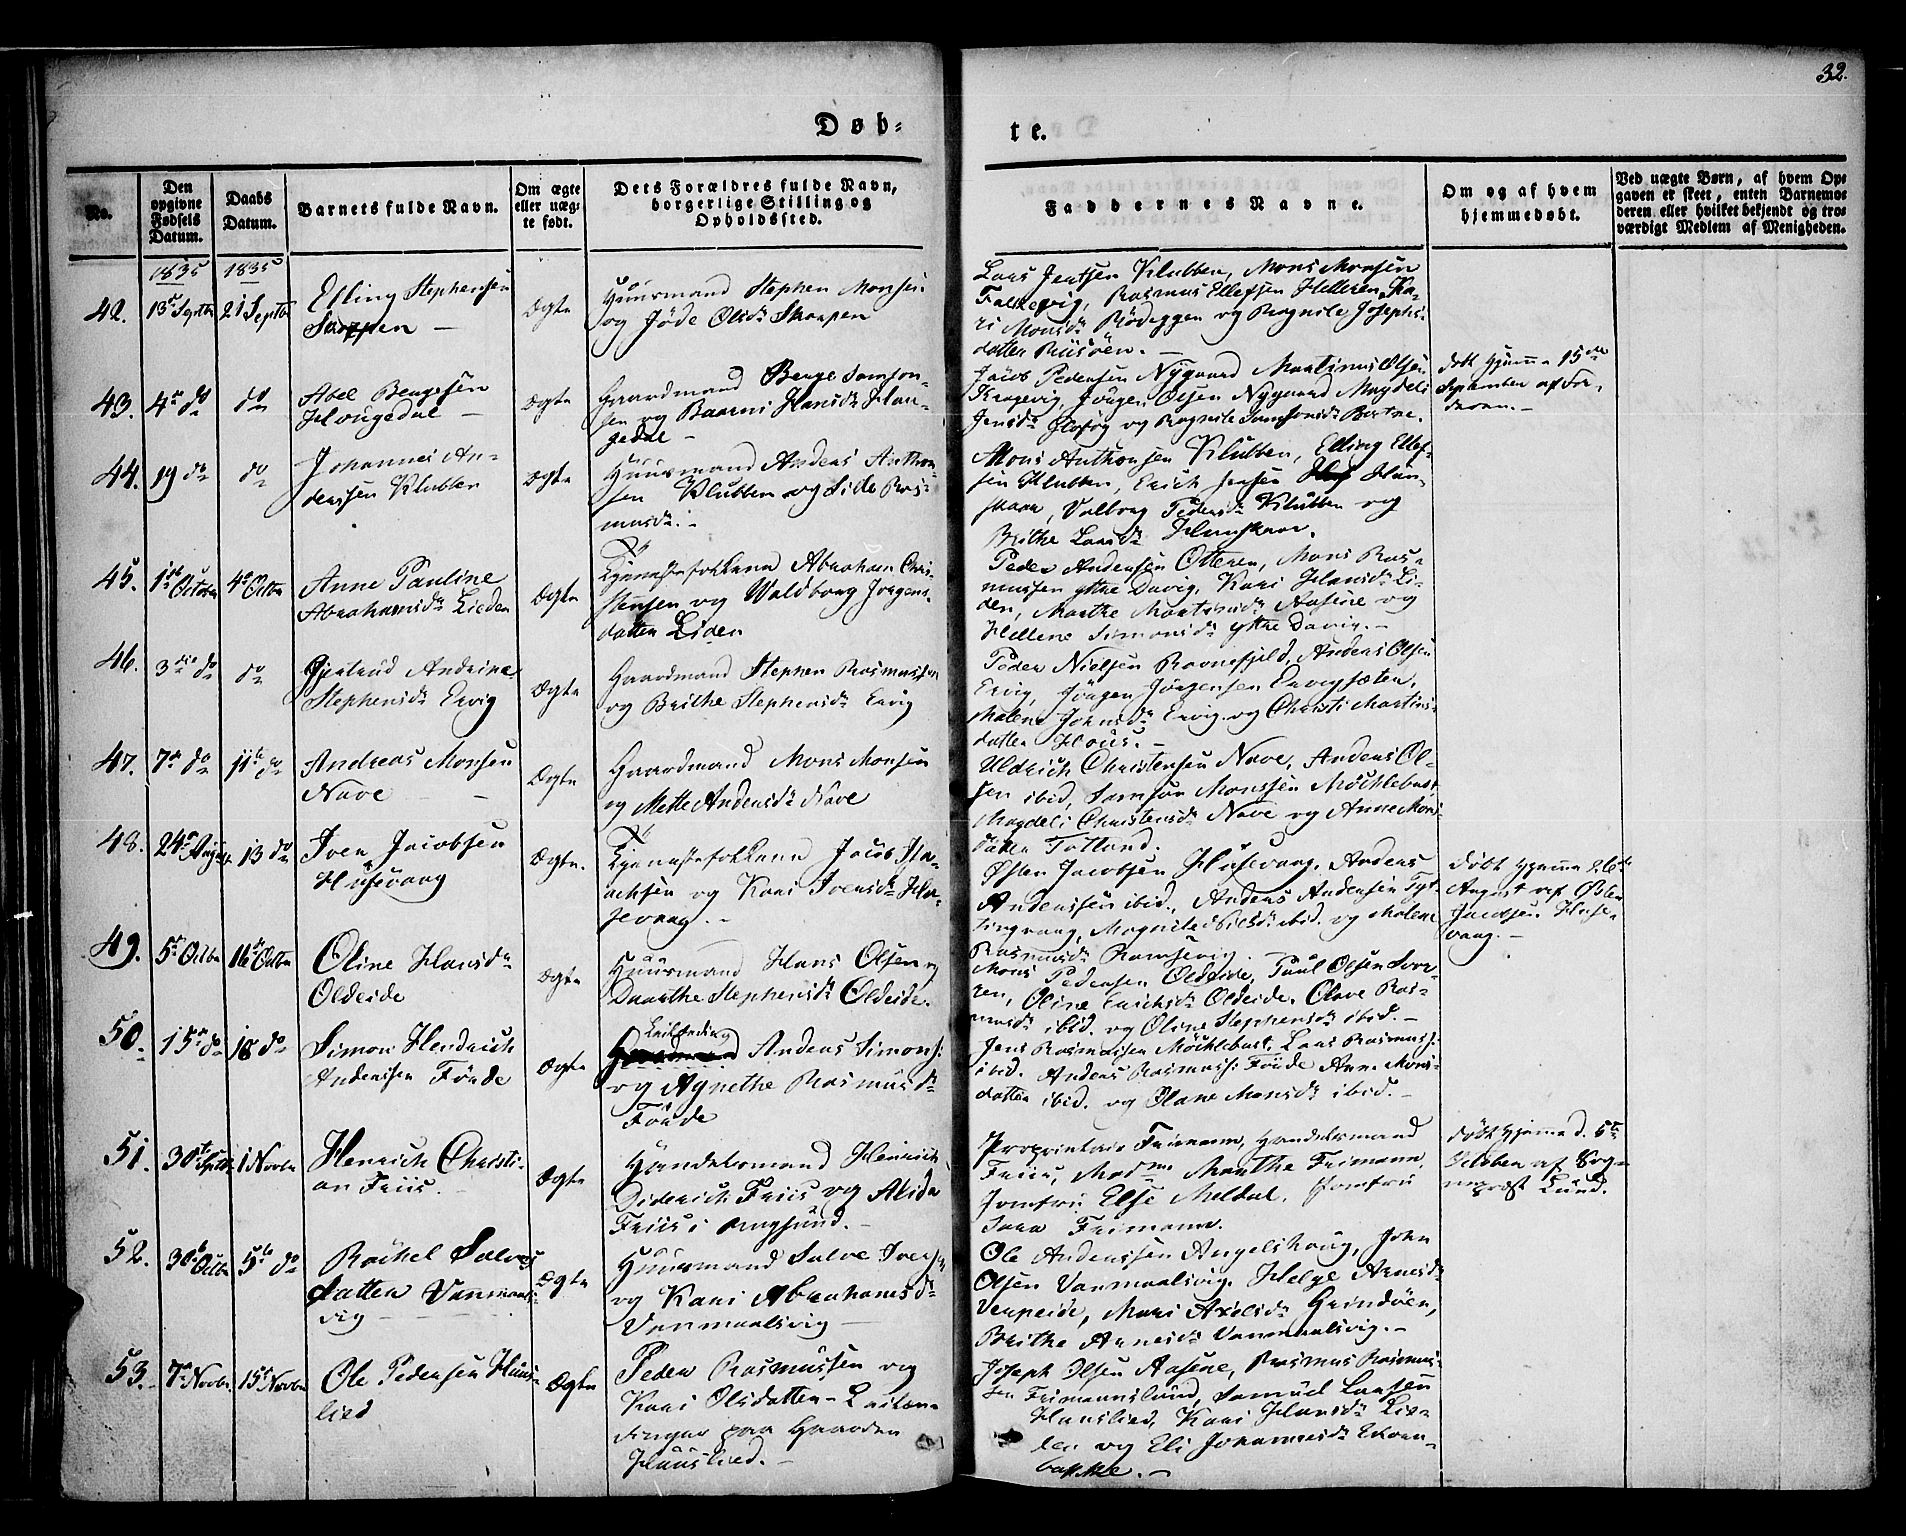 32.
Døb-
te.
No.
Den opgivne Fødsels Datum.
Daabs Datum.
Barnets fulde Navn.
Om ægte eller uægte født.
Dets Forældres fulde Navn, borgerlige Stilling og Opholdssted.
Faddernes Navne.
Om og af hvem hjemmedøbt.
Ved uægte Børn, af hvem Opgaven er skeet, enten Barnemoderen eller hvilket bekjendt og troværdigt Medlem af Menigheden.
1835 1835
42. 13de Septbr 21 Septbr
Elling Stephensen
Ægte
Huusmand Stephen Monsen
og Jøde Olsdr Skorpen
Lars Jentsen Klubben, Mons Monsen
Falkevig, Rasmus Ellefsen Helleren, Ka-
ri Monsdr Rødeggen og Rognile Josephs-
datter Riisøen. -
43. 4de do do
Abel Bengtsen
Hougedal -
Ægte
Gaardmand Benge Samson-
sen og Baarni Hansdr Hou-
gedal -
Jacob Pedersen Nygaard Martinus Olsen
Krogevig, Jørgen Olsen Nygaard Magdeli
Jensdr og Rognile Samsonsdr
døbt hjemme 15de
September af Fa-
deren. -
44. 19 do do
Johannes An-
derssen Klubben
Ægte
Huusmand Anders Anthon-
sen Klubben og Sile Ras-
musdr. -
Mons Anthonsen Klubben, Elling Ellef-
sen Klubben, Erich Jensen Hun-
skaar, Valborg Pedersdr Klubben og
Brithe Larsdr Hunskaar.
45. 1ste October 4de Octbr
Anne Pauline
Abrahamsdr Lieden
Ægte
Ejennestefolkene Abraham Chri-
stensen og Waldborg Jørgens-
datter Liden
Peder Andersen Otteren, Mons Ras-
mussen ytre Davig, Kari Hansdr Li-
den, Marthe Martinusdr Aasene og
Hellene Simonsdr ytre Davig. -
46. 3die do do
Gjertrud Andrine
Stephensdr Ervig
Ægte
Gaardmand Stephen Rasmussen
og Brithe Stephensdr Ervig
Peder Nielsen Ravnefjeld, Anders Olsen
Ervig, Jørgen Jørgensen Ervigsæter,
Malene Johnsdr Ervig og Christi Martins-
datter Hous. -
47. 7de do 11te do
Andreas Monsen
Nave -
Ægte
Gaardmand Mons Monsen
og Mette Andersdr Nave
Uldrich Christensen Nave, Anders Ol-
sen ibid, Samson Monsen Möchlebust,
Magdeli Christensdr Nave og Anne Mons-
datter Totland.
48. 24de August 13 do
Iver Jacobsen
Husevaag
Ægte.
Ejennestefolkene Jacob Isa-
achsen og Kari Iversdr Hu-
sevaag. -
Østen Jacobsen Husevaag, Anders
Anderssen ibid., Anders Andersen Tyt-
tingvaag, Magnile Nielsdr ibid. og Malene
Rasmusdr Ramsevig.
Døbt hjemme 26de
August af Østen
Jacobsen Huse-
vaag. -
49. 5te Octbr 16de Octbr
Oline Hansdr
Oldeide
Ægte
Huusmand Hans Olsen og
Daarthe Stephensdr Oldeide.
Mons Pedersen Oldeide, Paul Olsen Svor-
ren, Oline Erichsdr Oldeide, Olave Ras-
musdr ibid. og Oline Stephensdr ibid. -
50. 15de do 18 do
Simon Hendrich
Anderssen Förde
Ægte
Leilænding
Anders Simons:
og Agnethe Rasmusdr
Förde
Jens Rasmussen Möchlebust, Lars Rasmuss:
ibid. Anders Rasmuss: Förde Anne Mons-
datter ibid. og Olane Monsdr ibid. -
51. 30te Septbr 1 Novbr
Henrich Christi-
an Friis.
Ægte
Handelsmand Henrich
Diderich Friis og Alida
Friis i Rugsund. -
Proprietair Frimann, Handelsmand
Friis, Madme Marthe Frimann,
Jomfru Else Meldal, Jomfru
Sara Frimann.
døbt hjemme d. 5te
October af Sog-
nepræst Lund.
52. 30te Octbr 5te do
Rachel Salves
datter Vanmaals-
vig -
Ægte
Huusmand Salve Iversen
og Kari Abrahamsdr
Vanmaalsvig -
Ole Anderssen Angelshoug, John
Olsen Vanmaalsvig, Helge Arnesdr
Verpeide, Mari Axelsdr Grindöen,
Brithe Arnesdr Vanmaalsvig. -
53. 7de Novbr 15de Novbr
Ole Pedersen Huus-
lied
Ægte
Peder Rasmussen og
Kari Olsdatter - Leilæn-
dinger paa Gaarden
Huuslied. -
Joseph Olsen Aasene, Rasmus Rasmus-
sen Frimannslund, Samuel Larsen
Huuslied, Kari Hansdr Lie-
den og Eli Johannesdr Ekren-
bakke. -